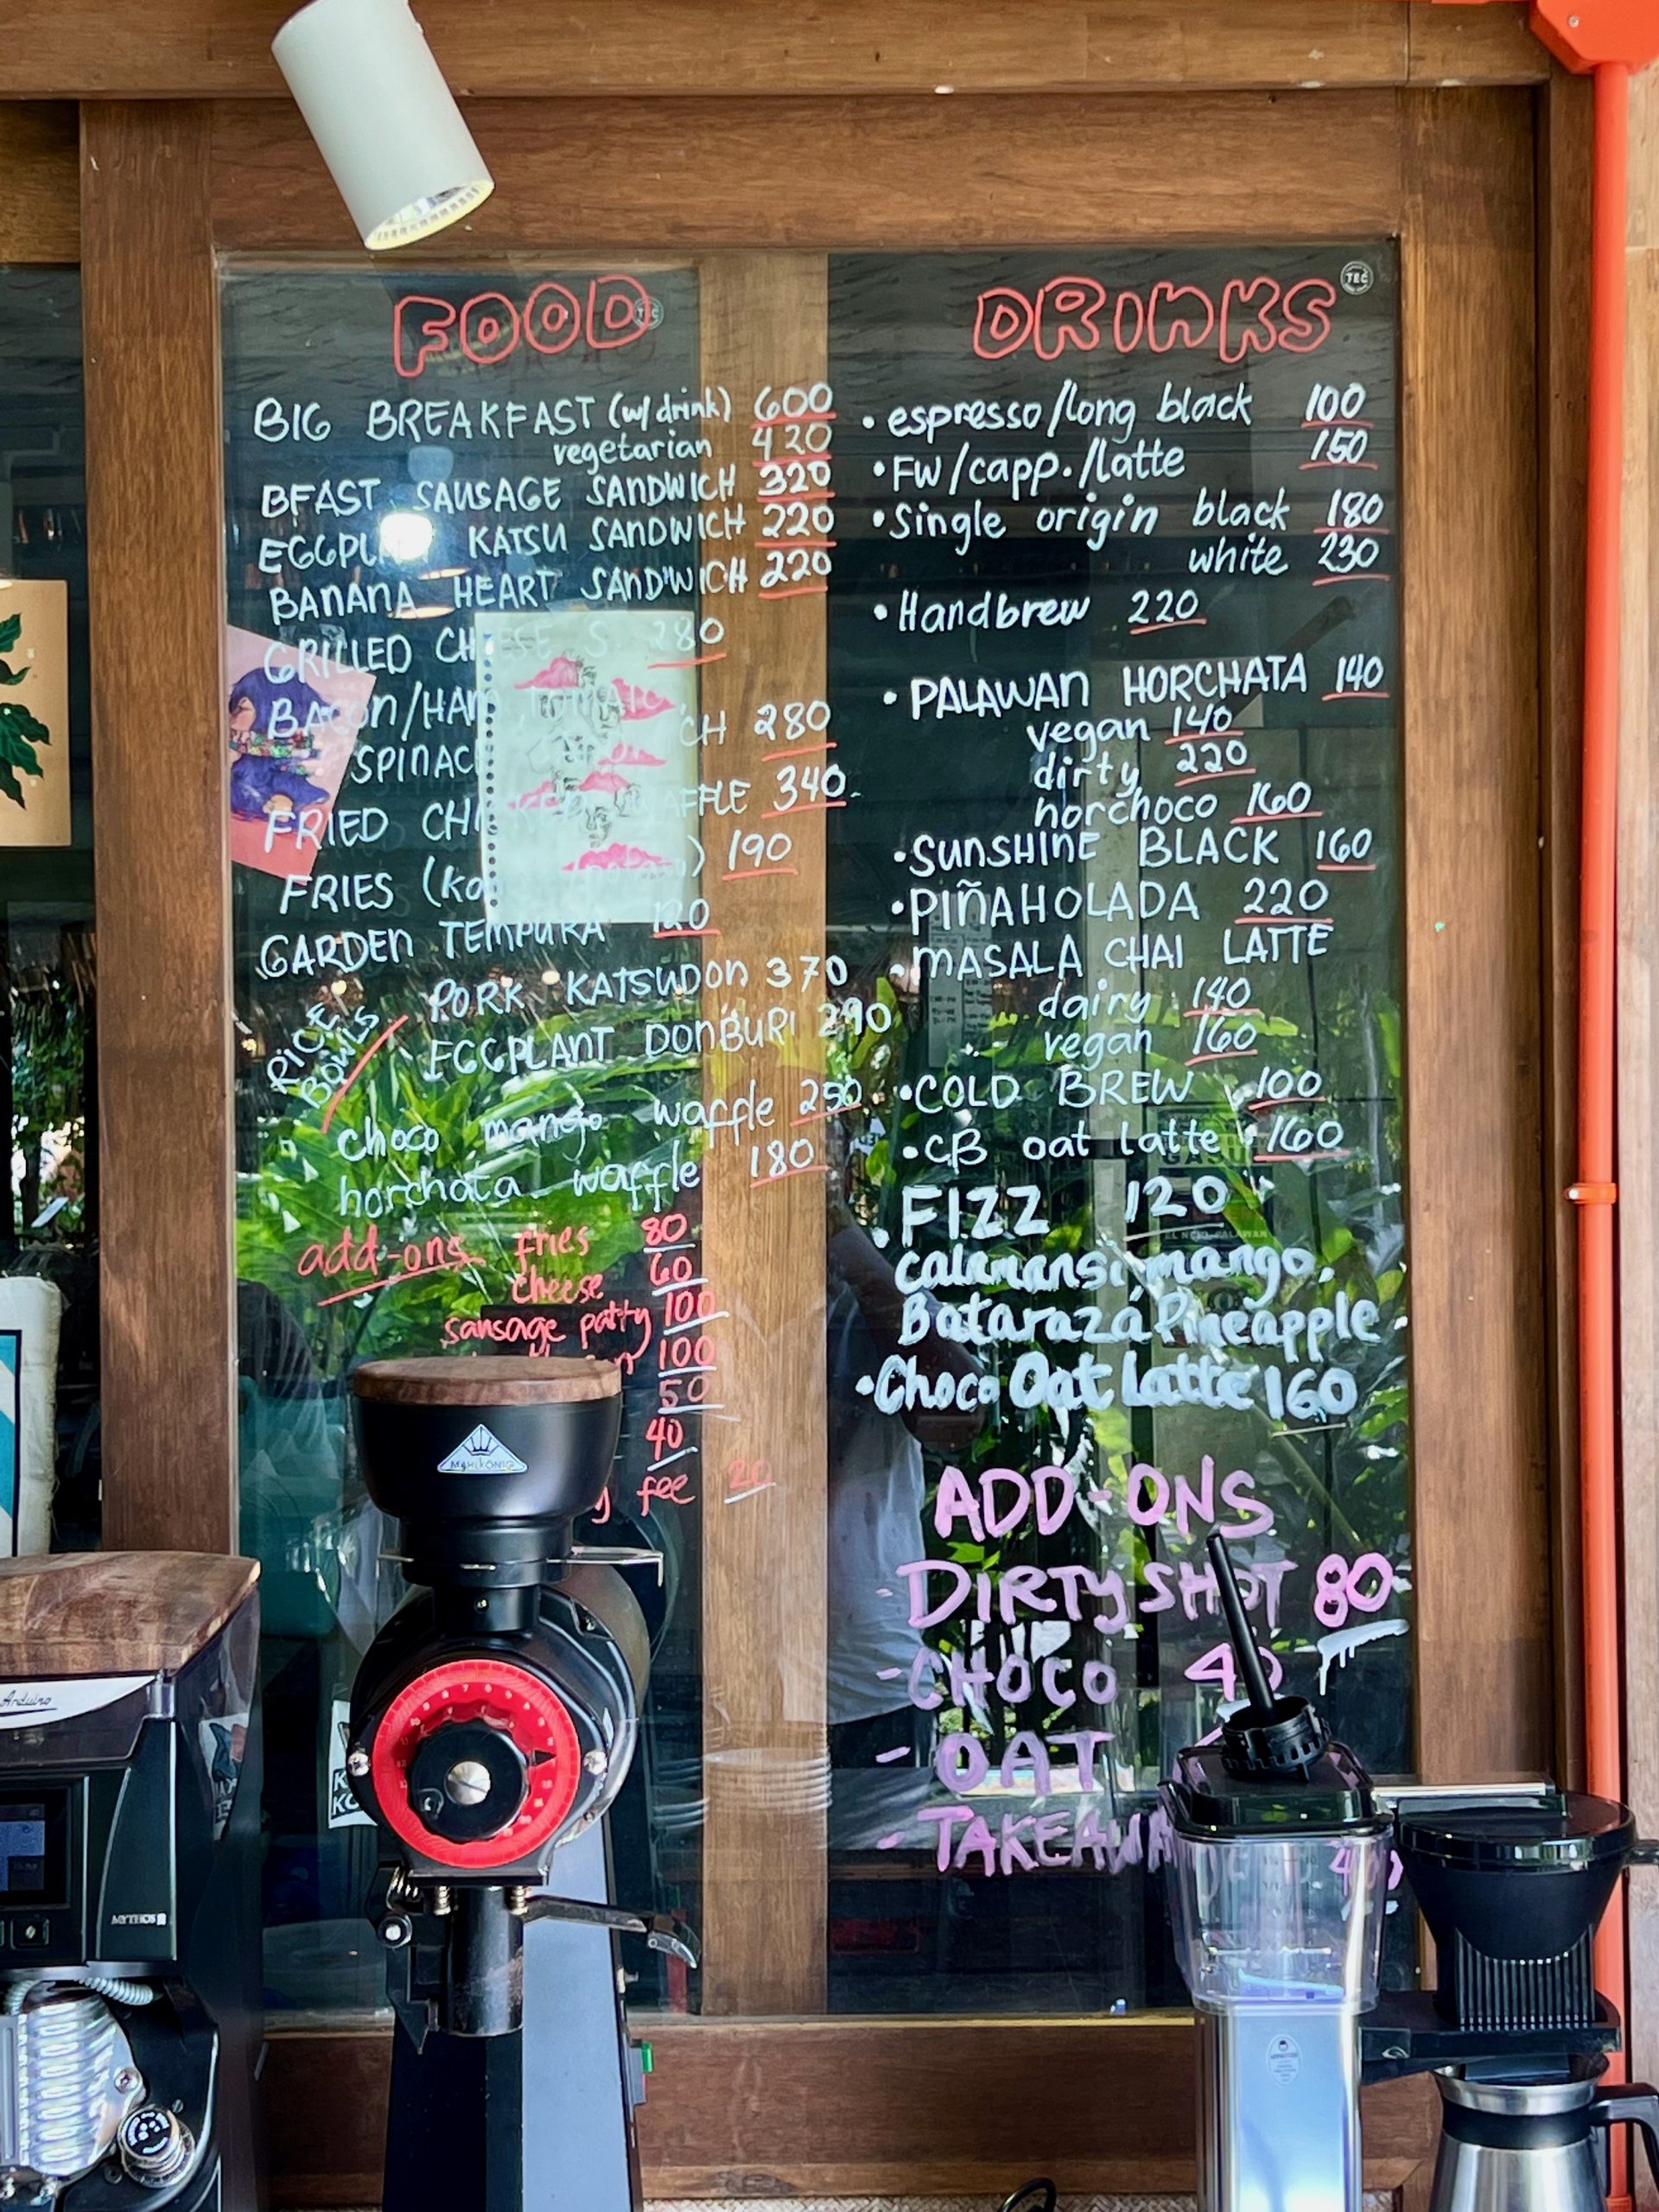 FOOD
BIG BREAKFAST (w/ drink) 600
vegetarian 420
BFAST SAUSAGE SANDWICH 320
KATSU SANDWICH 220
BANANA HEART SANDWICH 220
GRILLED CHEESE S. 280
BACON/HAM, TOMATO,
SPINACH 280
FRIED WAFFLE 340
FRIES 190
GARDEN TEMPURA 120
RICE BOWLS
PORK KATSUDON 370
EGGPLANT DONBURI 290
choco mango waffle 250
horchata waffle 180
add-ons fries 80
cheese 60
sausage patty 100
100
50
40
fee 20
DRINKS
TEC
• espresso/long black 100
• FW/capp./latte 150
• Single origin black 180
white 230
• Handbrew 220
• PALAWAN HORCHATA 140
vegan 140
dirty 220
horchoco 160
• SUNSHINE BLACK 160
• PIÑAHOLADA 220
• MASALA CHAI LATTE
dairy 140
vegan 160
• COLD BREW 100
• CB oat latte 160
• FIZZ 120
calamansi, mango,
Bataraza Pineapple
• Choco Oat Latte 160
ADD-ONS
- DIRTY SHOT 80
- CHOCO 40
- OAT
- TAKEAWAY
MAHLKÖNIG
MYTHOS